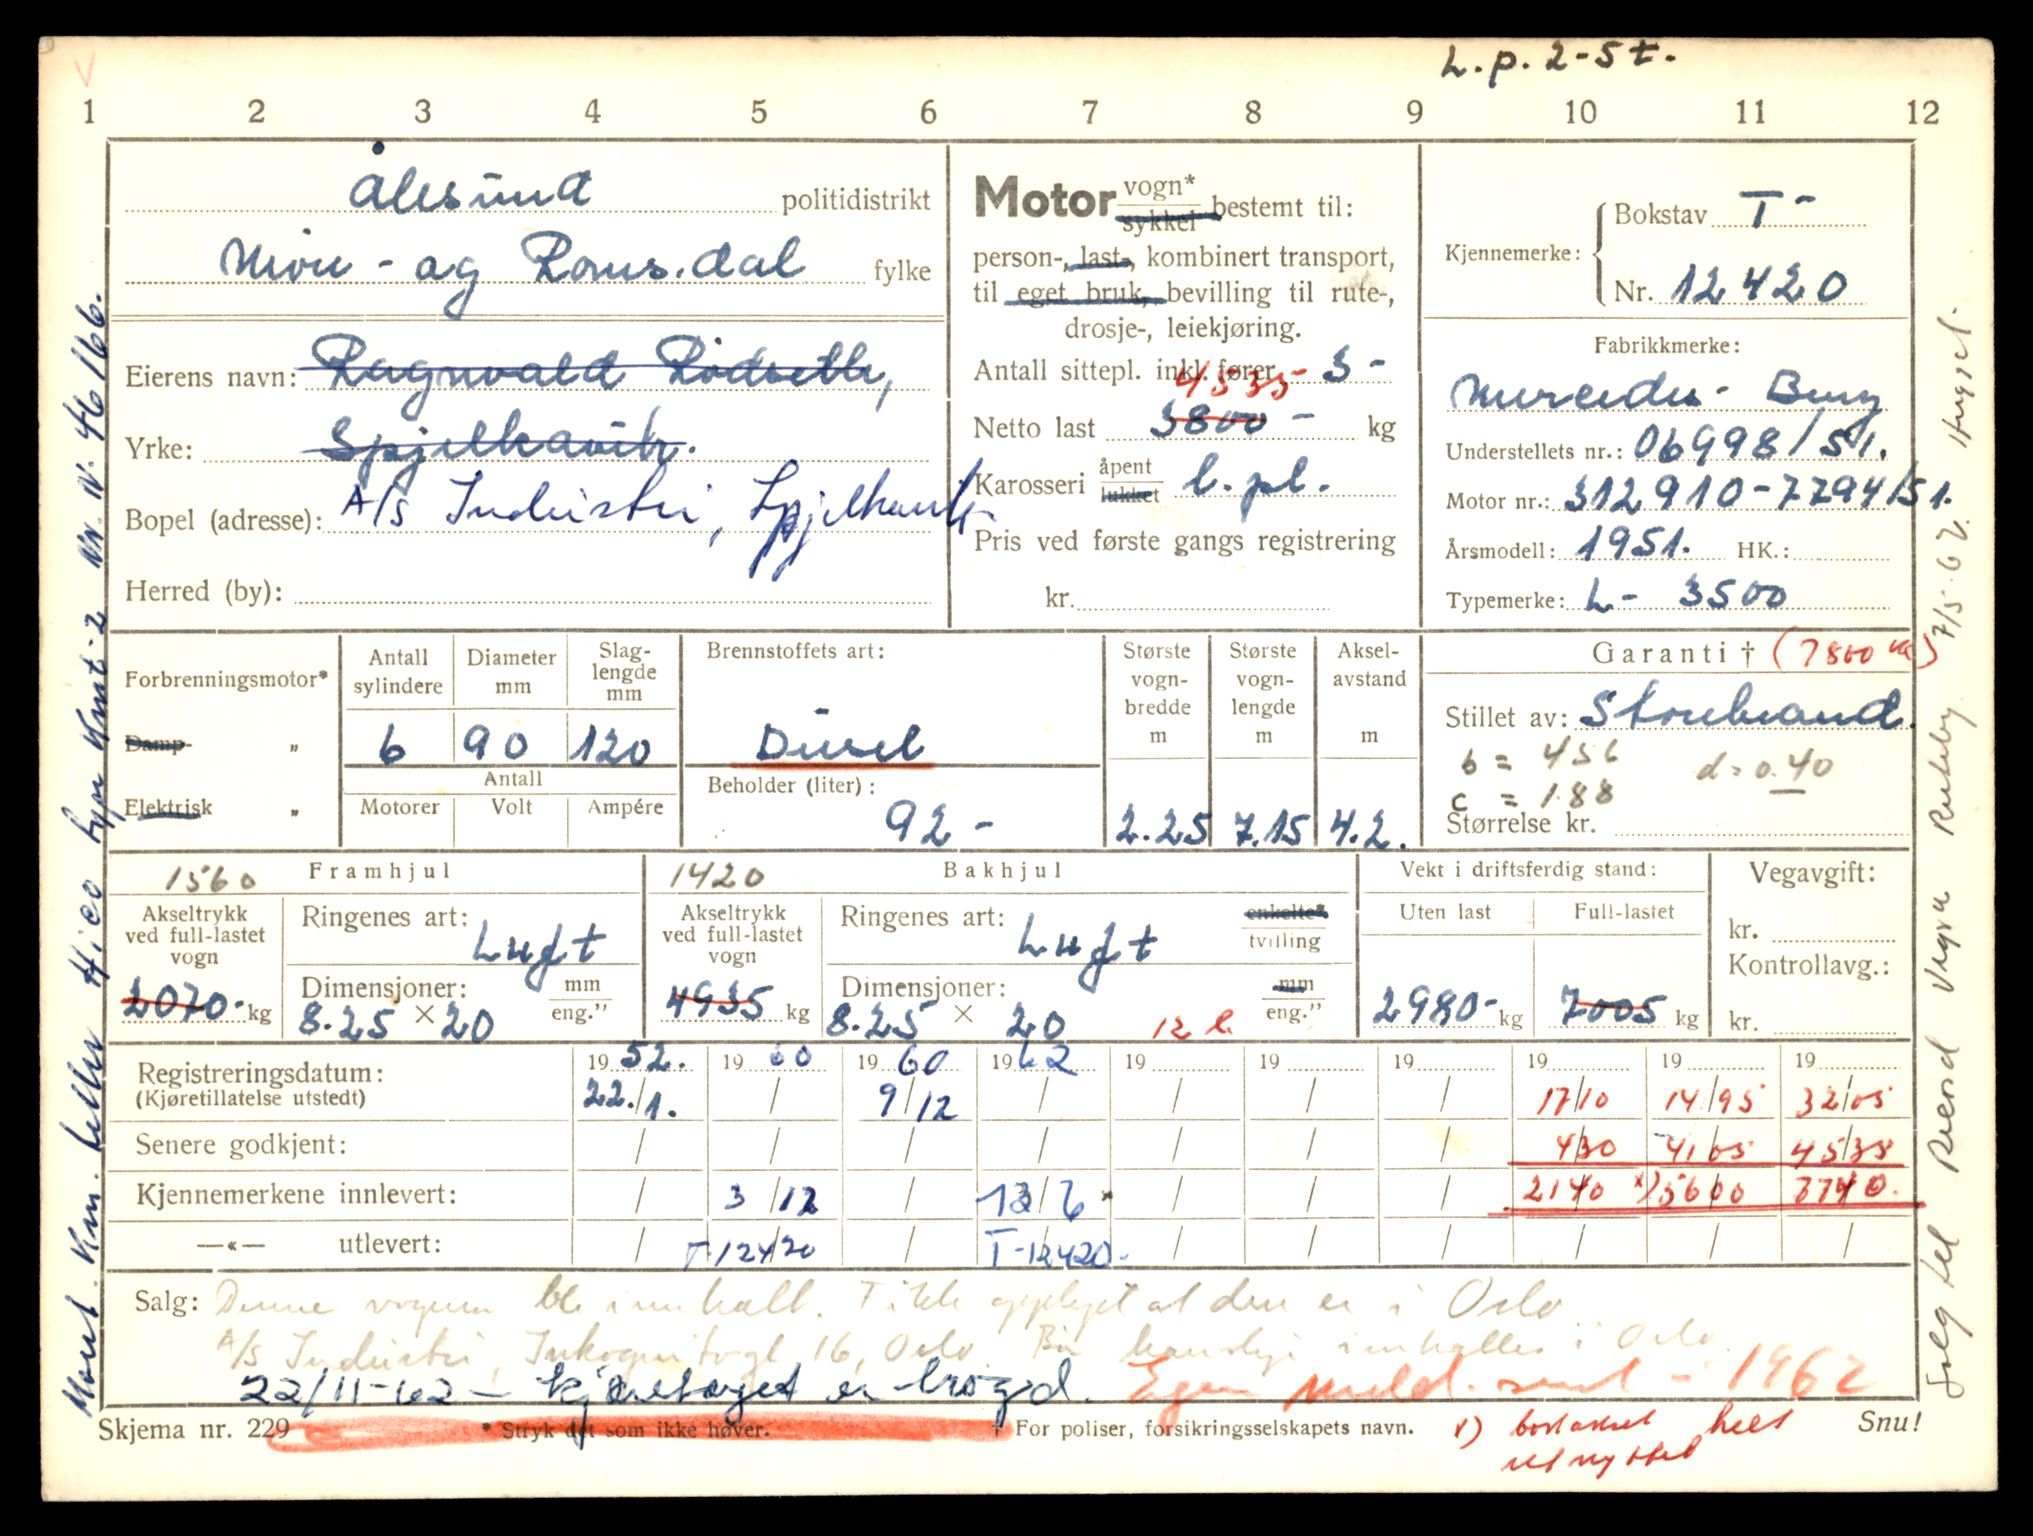 L.p. 2-5 t.
1 2 3 4 5 6 7 8 9 10 11 12
Ålesund politidistrikt
Møre- og Romsdal fylke
Eierens navn: Ragnvald Rødseth,
Yrke: Spjelkavik.
Bopel (adresse): A/s Industri, Spjelkavik
Herred (by):
Motor vogn* sykkel bestemt til:
person-, last-, kombinert transport,
til eget bruk, bevilling til rute-,
drosje-, leiekjøring.
Antall sittepl. inkl. fører 3-
4535
Netto last 3800- kg
Karosseri åpent lukket l.pl.
Pris ved første gangs registrering
kr.
Kjennemerke: Bokstav T-
Nr. 12420
Fabrikkmerke:
Mercedes-Benz
Understellets nr.: 06998/51.
Motor nr.: 312910-7794/51.
Årsmodell: 1951. HK.:
Typemerke: L- 3500
Forbrenningsmotor*
Damp- „
Elektrisk „
Antall sylindere Diameter mm Slaglengde mm
6 90 120
Antall
Motorer Volt Ampére
Brennstoffets art:
Diesel
Beholder (liter):
92-
Største vognbredde m 2.25
Største vognlengde m 7.15
Akselavstand m 4.2.
Garanti † (7800 kg)
Stillet av: Storebrand.
b = 456 d = 0.40
c = 1.88
Størrelse kr.
1560 Framhjul
Akseltrykk ved full-lastet vogn
2070- kg
Ringenes art: Luft
Dimensjoner: mm eng.”
8.25 × 20
1420 Bakhjul
Akseltrykk ved full-lastet vogn
4935 kg
Ringenes art: Luft enkelte* tvilling
Dimensjoner: mm eng.”
8.25 × 20 12 l.
Vekt i driftsferdig stand:
Uten last Full-lastet
2980- kg 7005 kg
Vegavgift:
kr.
Kontrollavg.:
kr.
Registreringsdatum: 1952. 1960 1960 1962 19 19 19 19 19 19
(Kjøretillatelse utstedt) 22./1. / 9/12 / / / / 1710 1495 3205
Senere godkjent: / / / / / / / 430 4105 4535
Kjennemerkene innlevert: / 3/12 / 13/6 / / / 2140 x) 5600 7740.
—«— utlevert: / T-12420 / T-12420- / / / / / /
Salg: Denne vognen ble innkalt. T ikk opplyst at den er i Oslo
A/s Industri, Inkognitogt 16, Oslo. Bør kanskje innkalles i Oslo.
22/11-62 - kjøretøyet er bragd. Egen meld. sent - 1962
Skjema nr. 229 * Stryk det som ikke høver. † For poliser, forsikringsselskapets navn. Snu!
x) helt
utnyttet